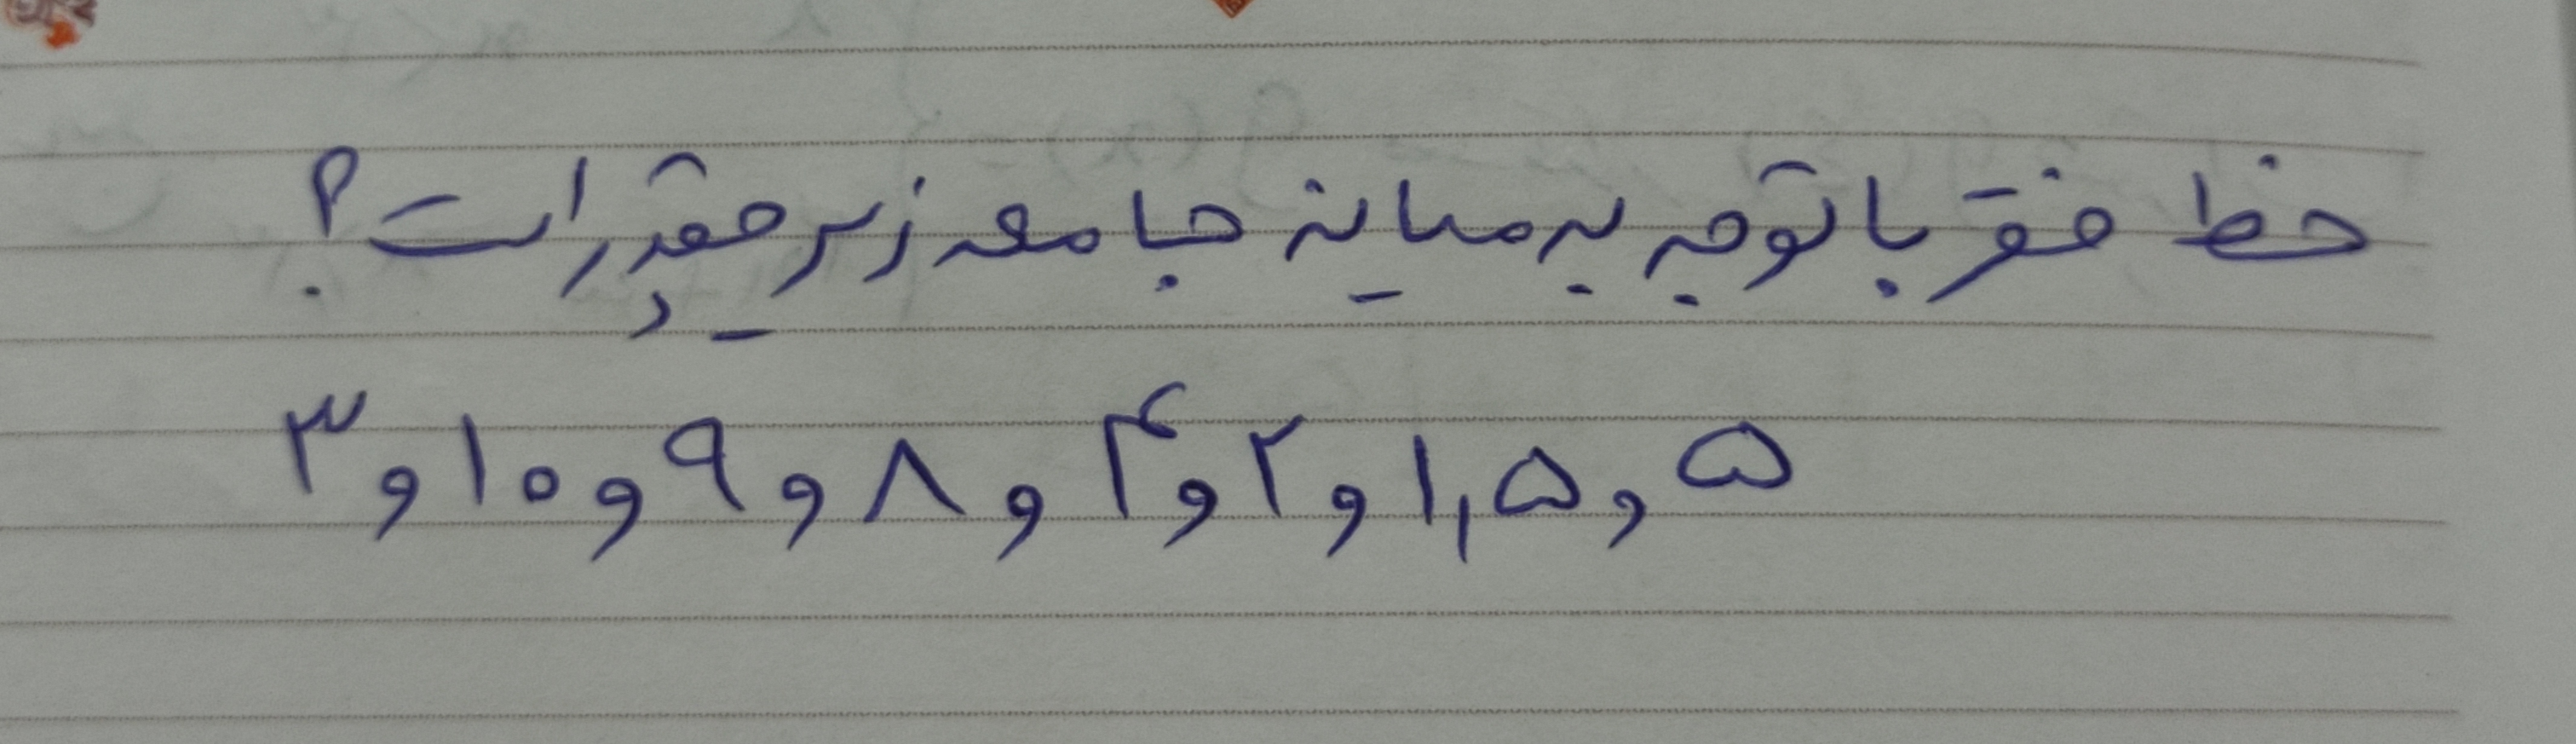 خط فقر با توجه به میانه جامعه زیر چقدر است؟
۵ و ۱,۵ و ۲ و ۴ و ۸ و ۹ و ۱۰ و ۳